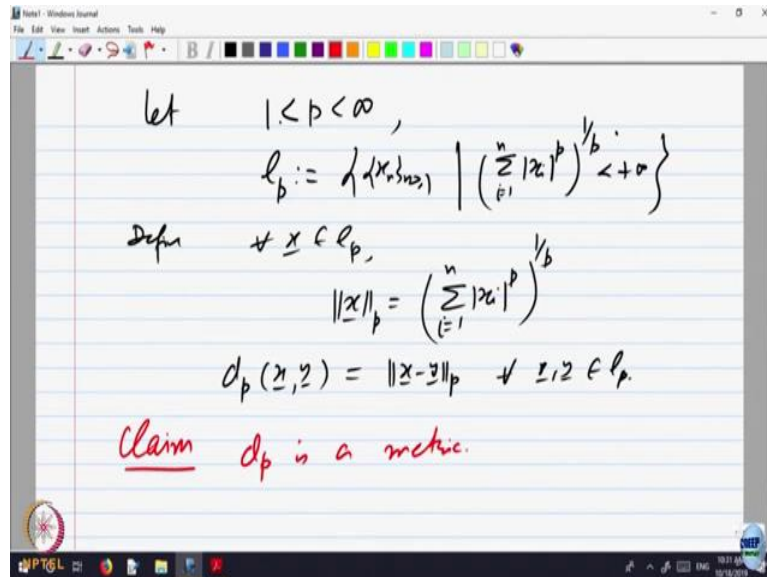 Note1 - Windows Journal
File Edit View Insert Actions Tools Help
let 1 < p < ∞,
l_p := { {x_n}_{n≥1} | (∑_{i=1}^{n} |x_i|^p)^{1/p} < +∞ }
Define ∀ x ∈ l_p,
||x||_p = (∑_{i=1}^{n} |x_i|^p)^{1/p}
d_p (x, y) = ||x - y||_p ∀ x, y ∈ l_p.
Claim d_p is a metric.
NPTEL
CDEEP
ENG
10:31 AM
10/18/2019